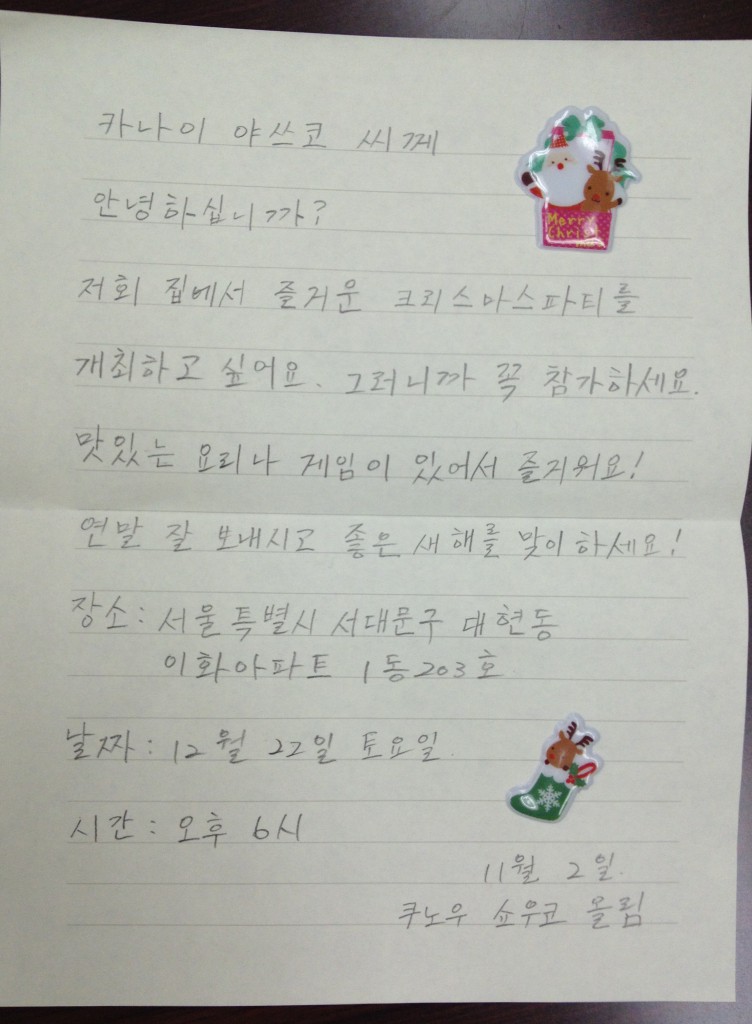 카나이 야쓰코 씨께
Merry
Christ
안녕하십니까?
저희 집에서 즐거운 크리스마스파티를
개최하고 싶어요. 그러니까 꼭 참가하세요.
맛있는 요리나 게임이 있어서 즐거워요!
연말 잘 보내시고 좋은 새해를 맞이하세요!
장소: 서울특별시 서대문구 대현동
이화아파트 1동203호
날짜: 12월 22일 토요일.
시간: 오후 6시
11월 2일.
쿠노우 쇼우코 올림